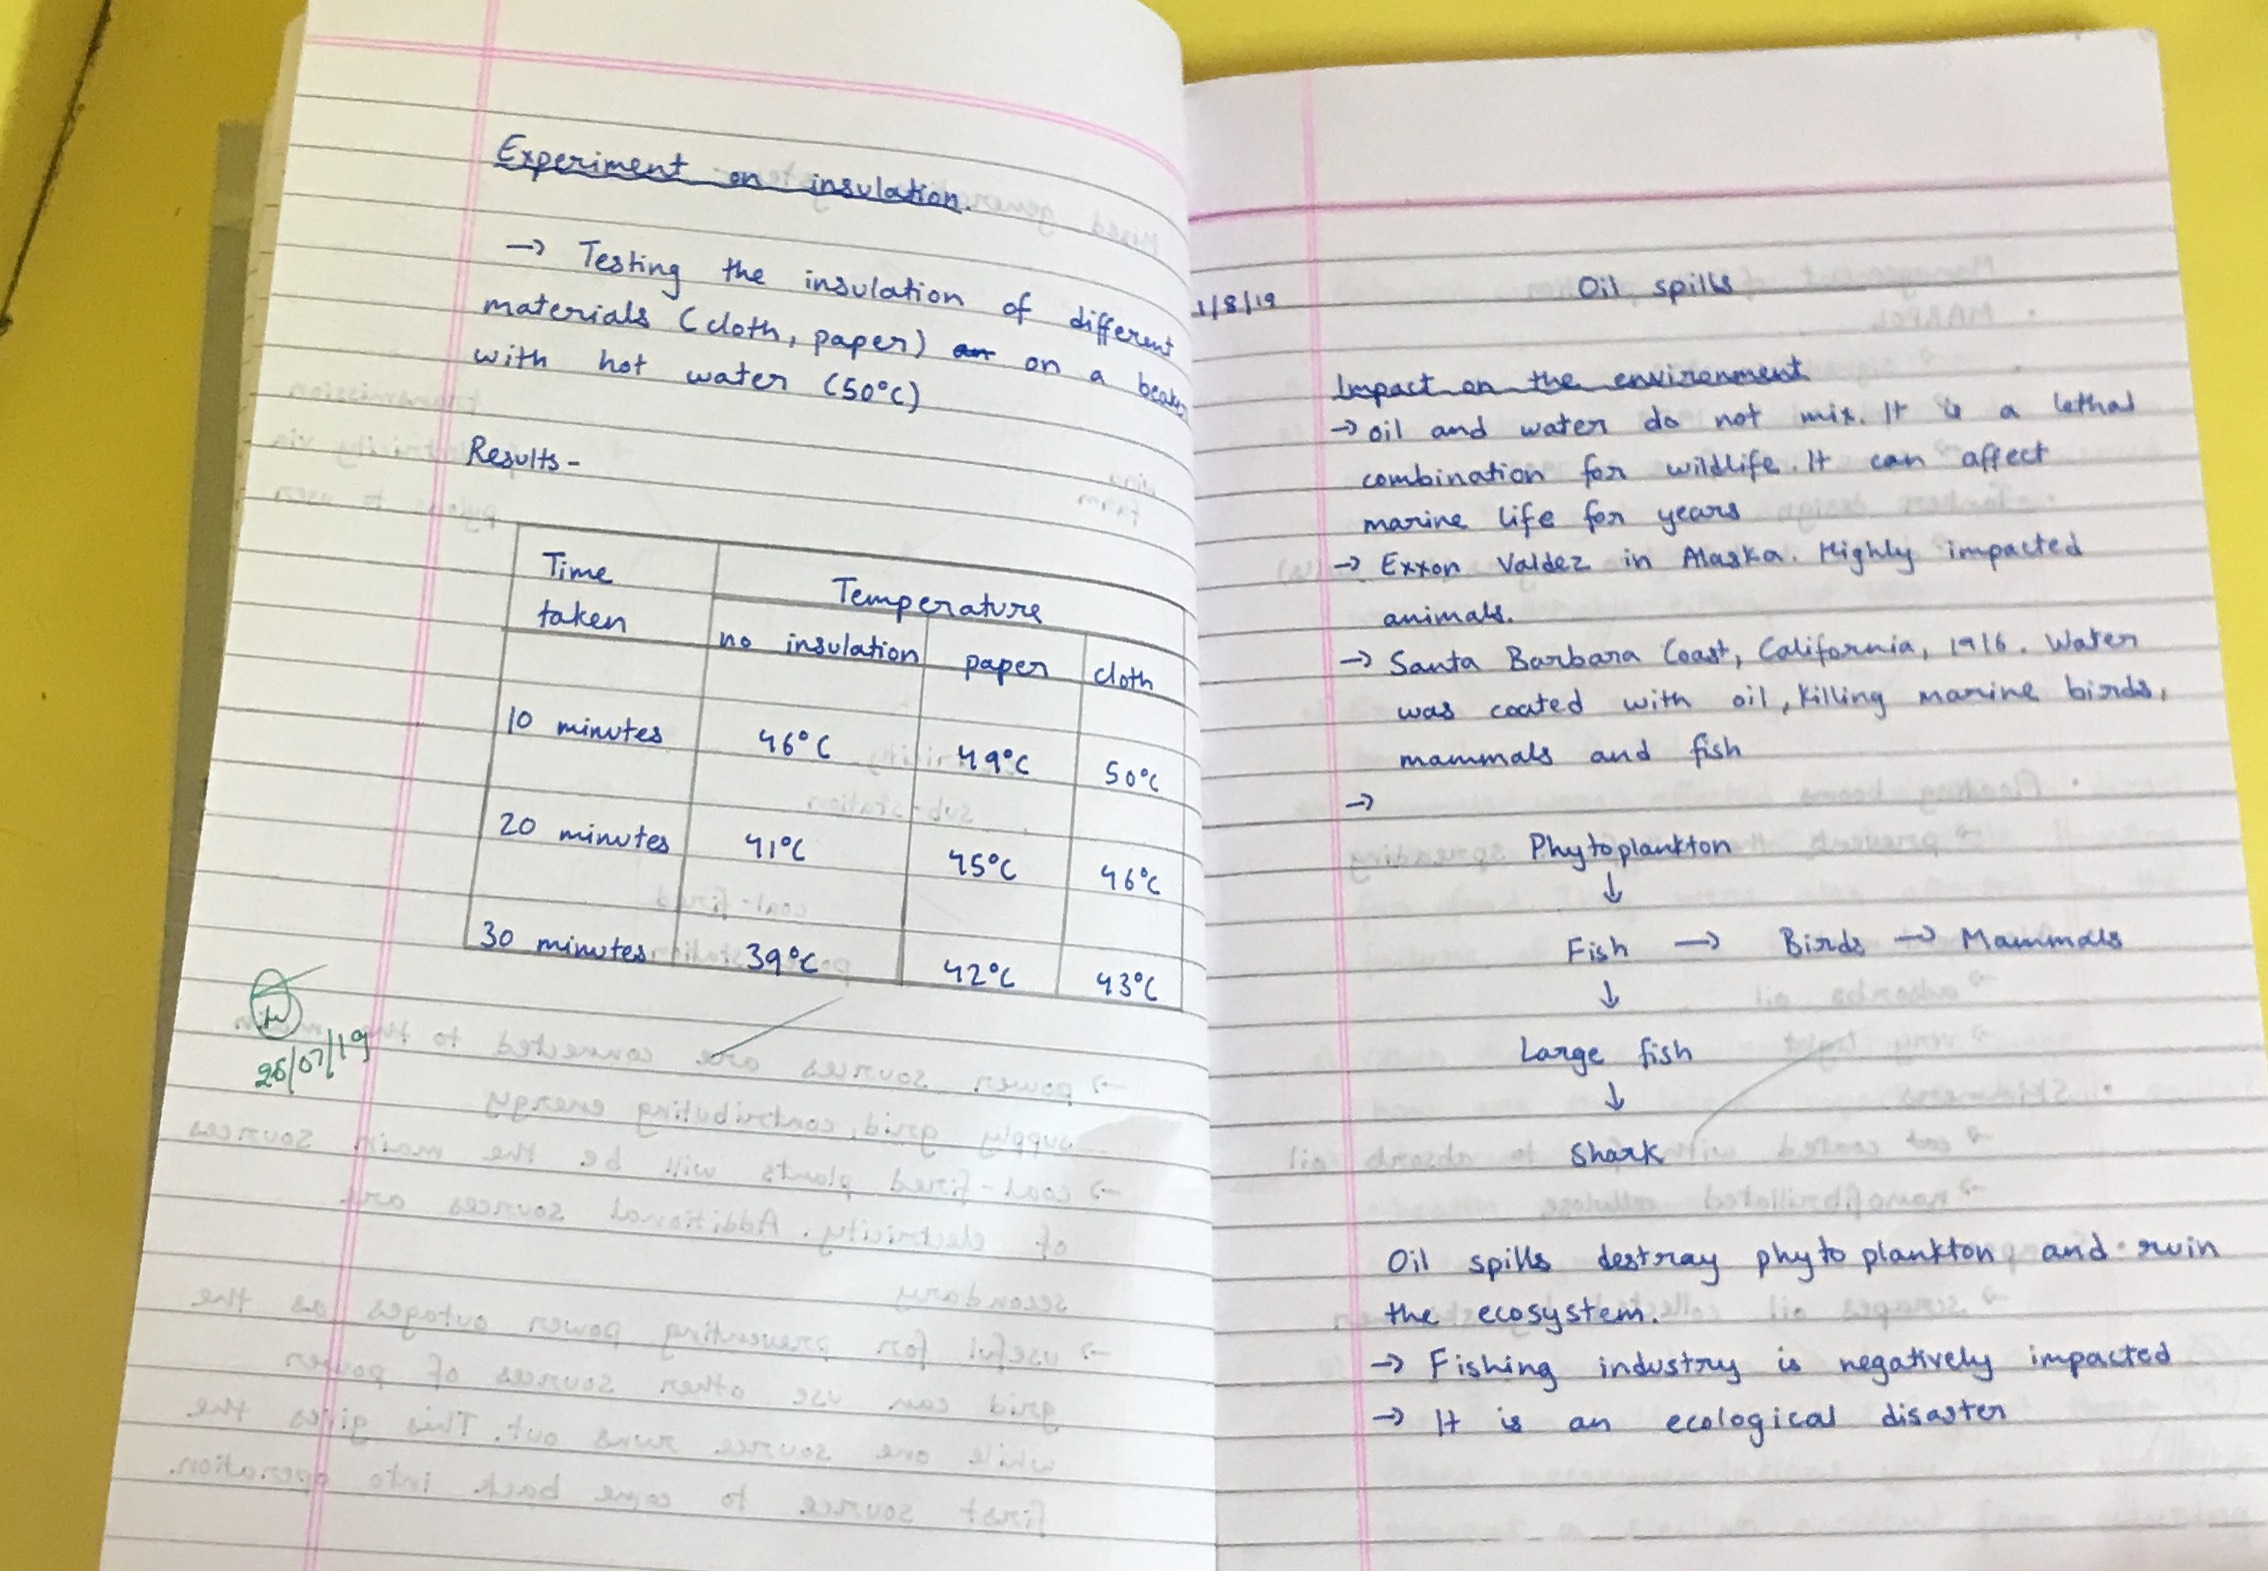 Experiment on insulation.
→ Testing the insulation of different
materials (cloth, paper) on a beaker
with hot water (50°C)
Results -
Time taken
Temperature
no insulation paper cloth
10 minutes 46°C 49°C 50°C
20 minutes 41°C 45°C 46°C
30 minutes 39°C 42°C 43°C
26/07/19
1/8/19 Oil spills
Impact on the environment
→ oil and water do not mix. It is a lethal
combination for wildlife. It can affect
marine life for years
→ Exxon Valdez in Alaska. Highly impacted
animals.
→ Santa Barbara Coast, California, 1916. Water
was coated with oil, killing marine birds,
mammals and fish
→
Phytoplankton
↓
Fish → Birds → Mammals
↓
Large fish
↓
Shark
Oil spills destray phyto plankton and ruin
the ecosystem.
→ Fishing industry is negatively impacted
→ It is an ecological disaster